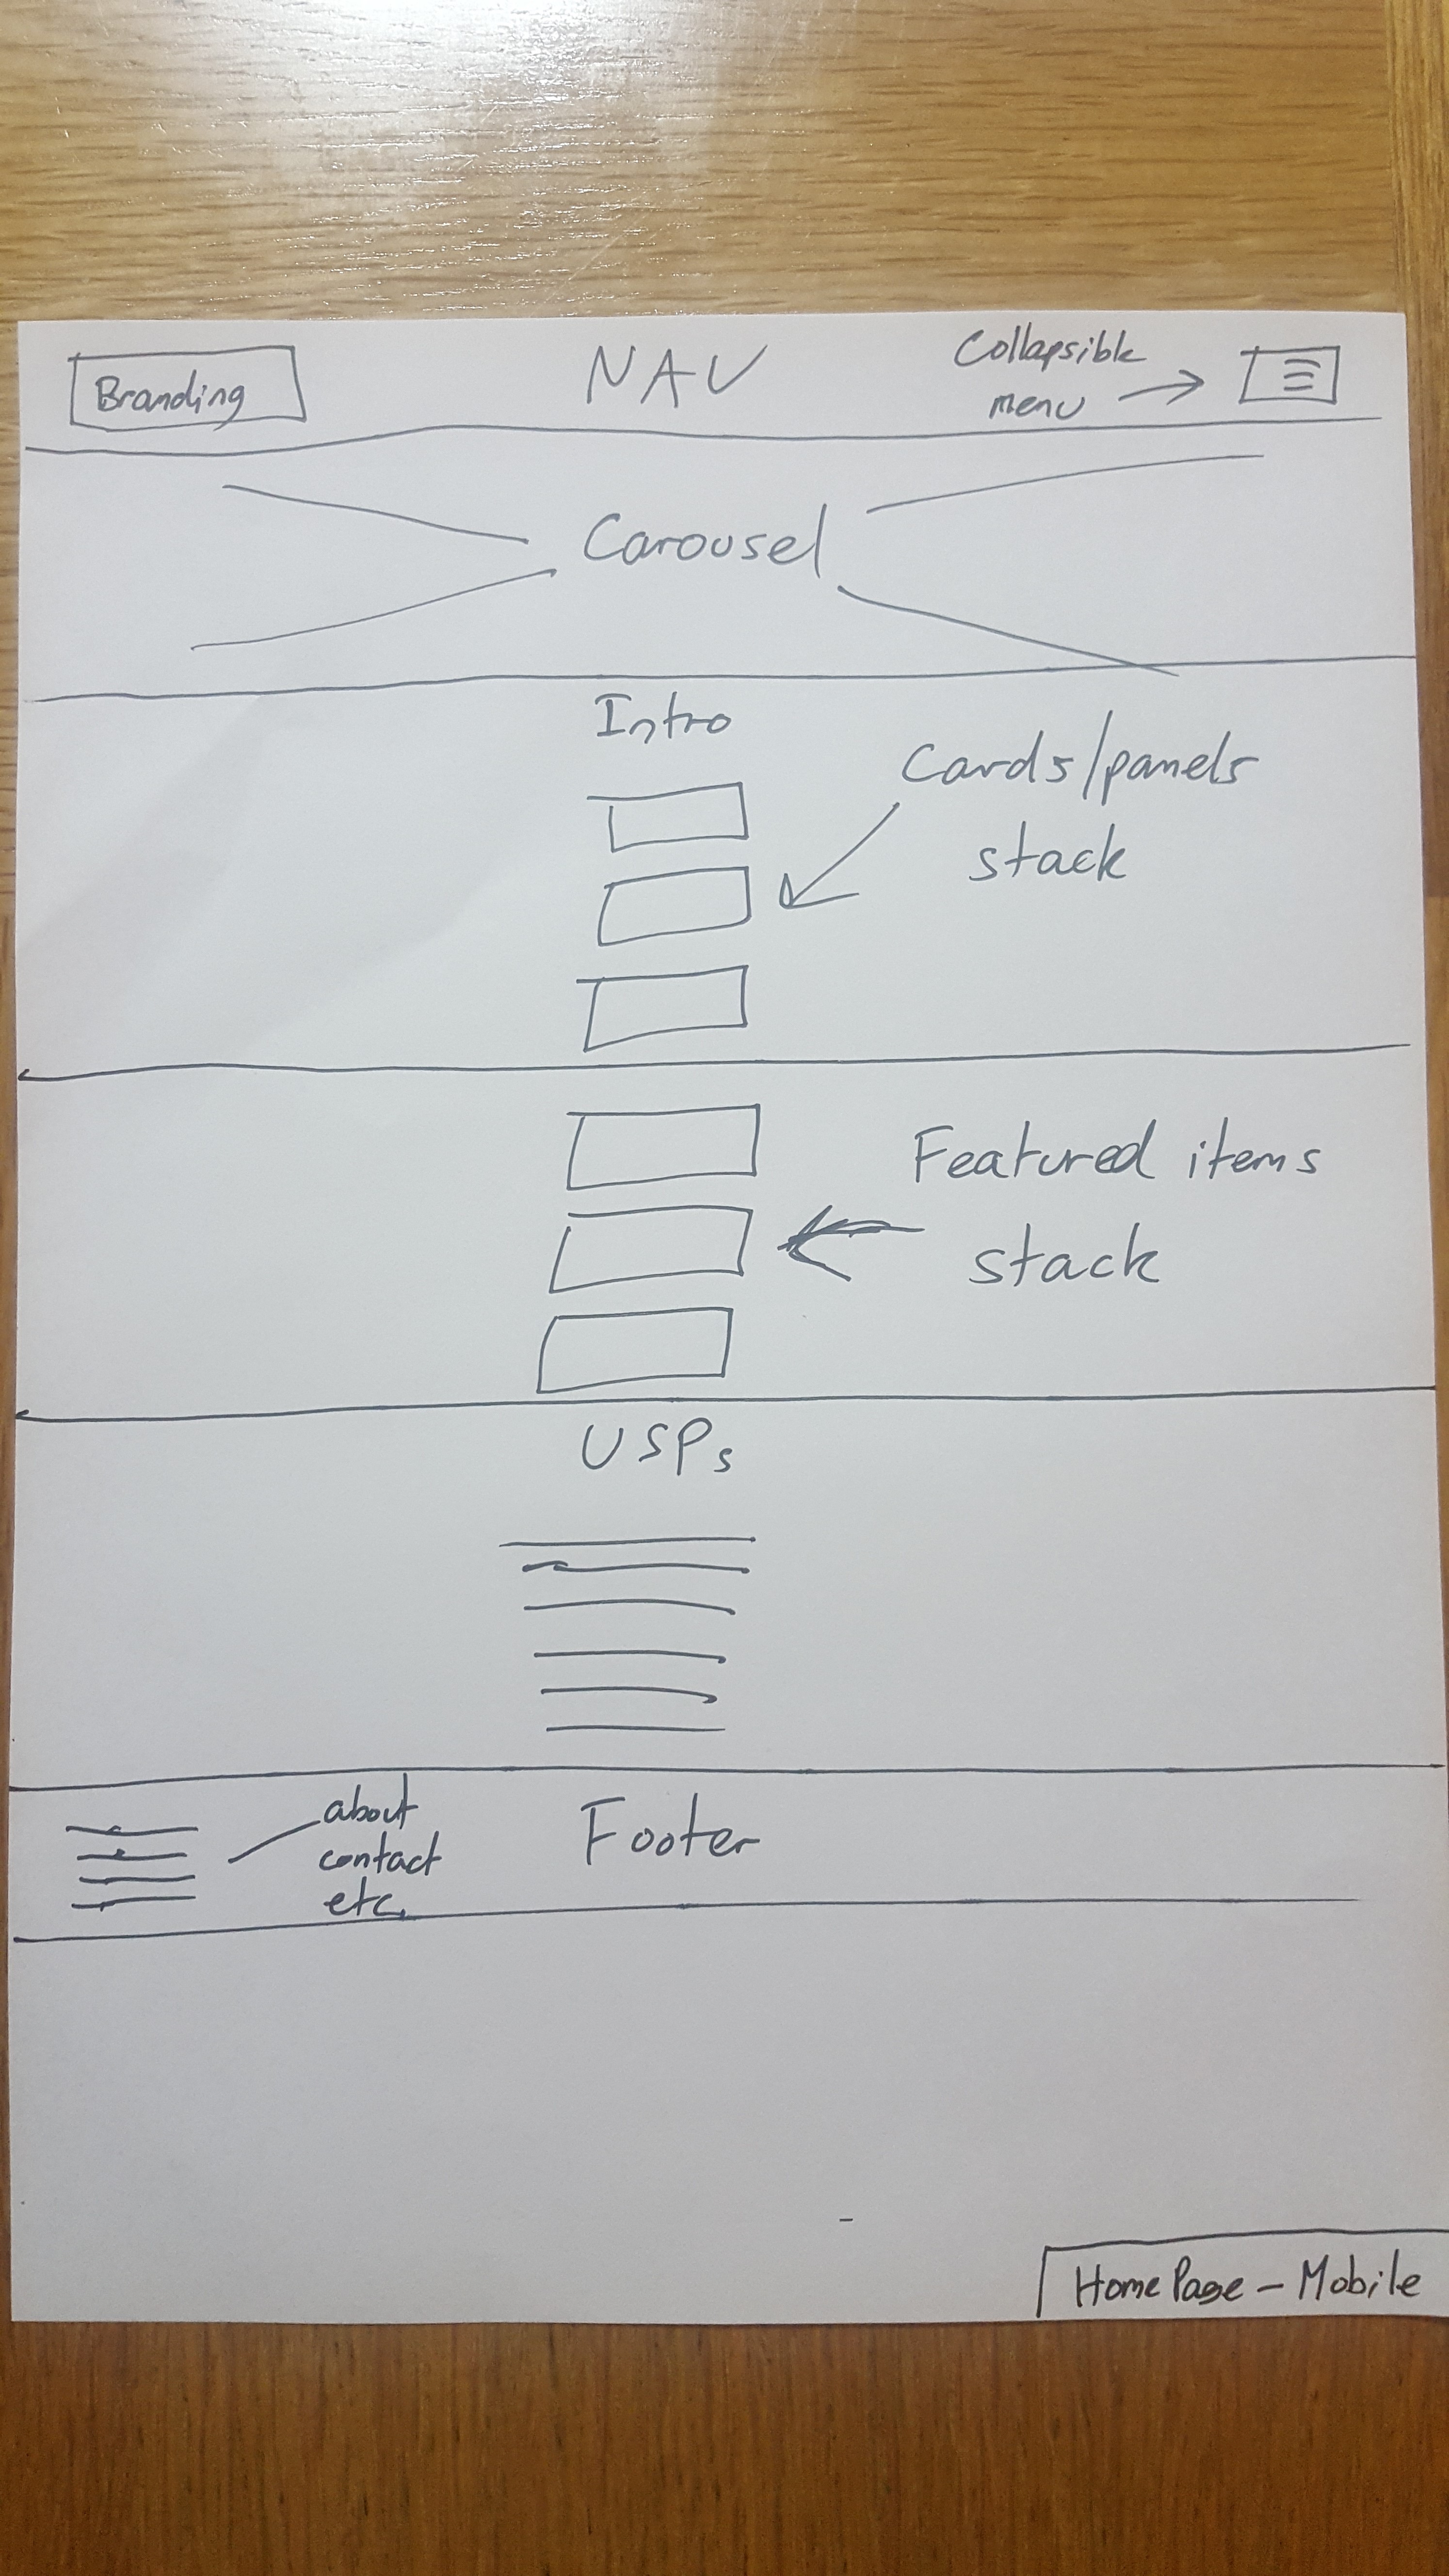 Branding
NAV
Collapsible
menu
Carousel
Intro
Cards/panels
stack
Featured items
stack
USPs
about
contact
etc.
Footer
Home Page - Mobile